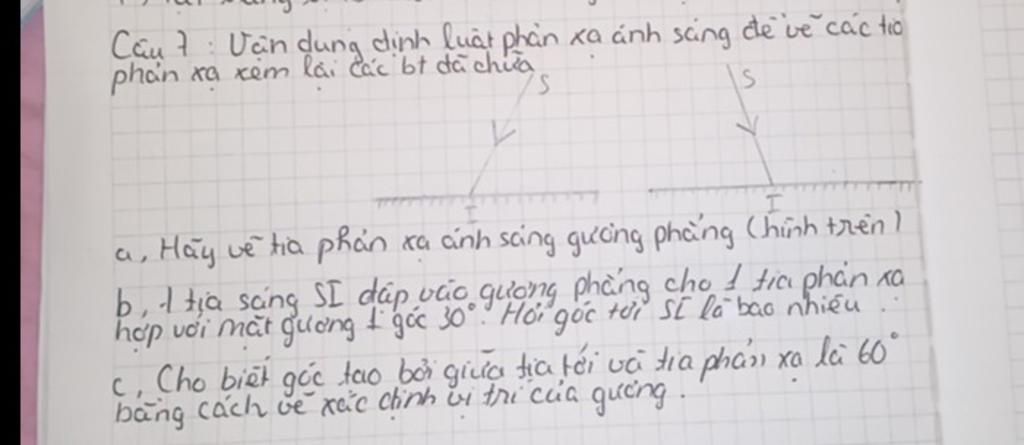 Câu 7: Vận dụng định luật phản xạ ánh sáng để vẽ các tia
phản xạ xem lại các bt đã chữa
S
S
I
I
a, Hãy vẽ tia phản xạ ánh sáng gương phẳng (hình trên)
b, 1 tia sáng SI đáp vào gương phẳng cho 1 tia phản xạ
hợp với mặt gương 1 góc 30°. Hỏi góc tới SI là bao nhiêu
c, Cho biết góc tạo bởi giữa tia tới và tia phản xạ là 60°
bằng cách vẽ xác định vị trí của gương.